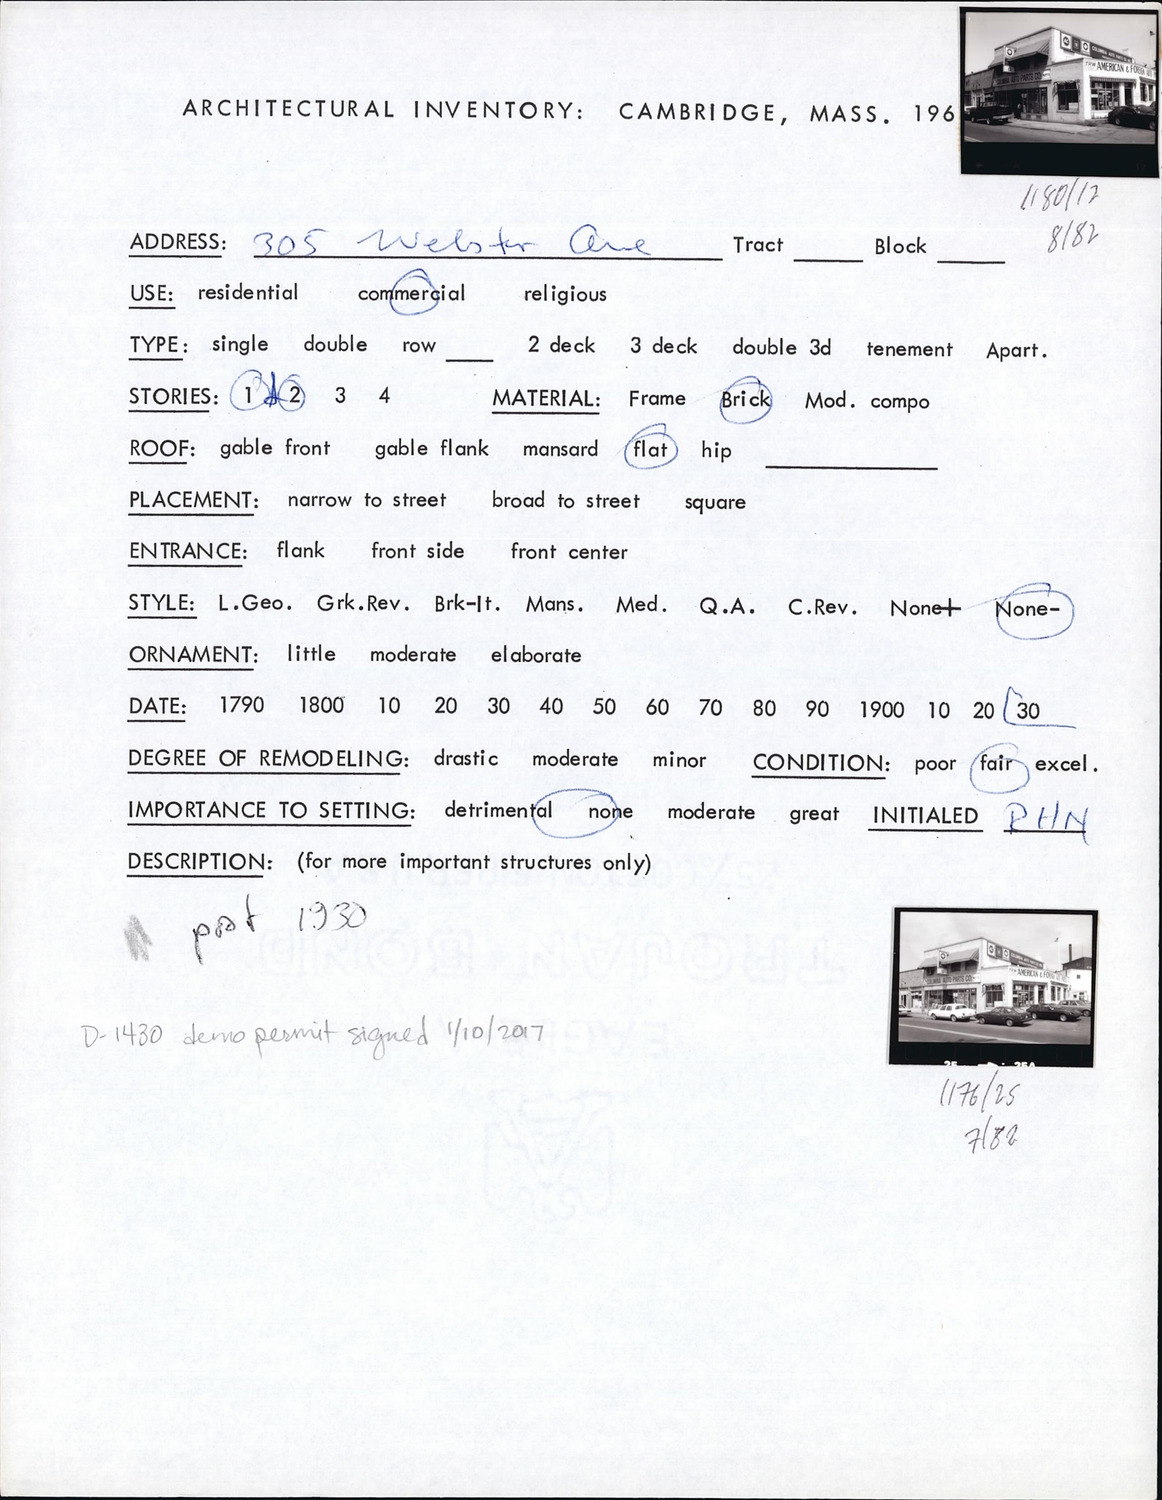 ARCHITECTURAL INVENTORY: CAMBRIDGE, MASS. 196
COLUMBIA AUTO PARTS CO
AMERICAN & FOREIGN
1180/12
8/82
ADDRESS: 305 Webster Ave Tract Block
USE: residential commercial religious
TYPE: single double row 2 deck 3 deck double 3d tenement Apart.
STORIES: 1 & 2 3 4 MATERIAL: Frame Brick Mod. compo
ROOF: gable front gable flank mansard flat hip
PLACEMENT: narrow to street broad to street square
ENTRANCE: flank front side front center
STYLE: L.Geo. Grk.Rev. Brk-It. Mans. Med. Q.A. C.Rev. None+ None-
ORNAMENT: little moderate elaborate
DATE: 1790 1800 10 20 30 40 50 60 70 80 90 1900 10 20 30
DEGREE OF REMODELING: drastic moderate minor CONDITION: poor fair excel.
IMPORTANCE TO SETTING: detrimental none moderate great INITIALED RHN
DESCRIPTION: (for more important structures only)
post 1930
D-1430 demo permit signed 1/10/2017
COLUMBIA AUTO PARTS CO
25 25A
1176/25
7/82